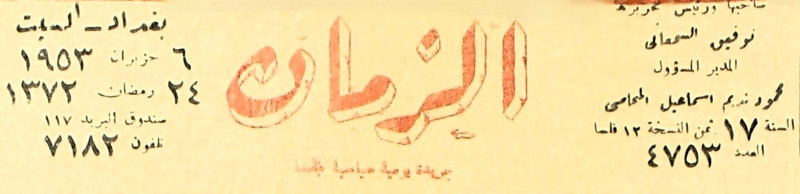 صاحبها ورئيس تحريرها
توفيق السمعاني
المدير المسؤول
محمود نديم اسماعيل المحامي
السنة ١٧ ثمن النسخة ١٢ فلسا
العدد ٤٧٥٣
الزمان
جريدة يومية سياسية
بغداد - السبت
٦ حزيران ١٩٥٣
٢٤ رمضان ١٣٧٢
صندوق البريد ١١٧
تلفون ٧١٨٢